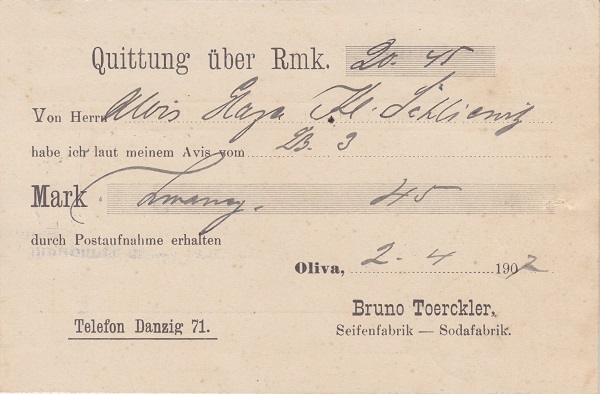 Quittung über Rmk. 20.45
Von Herrn Alois Kl. Schliewitz
habe ich laut meinem Avis vom 3
Mark Zwanzig. 45
durch Postaufnahme erhalten
Oliva, 2.4 1902
Bruno Toerckler,
Telefon Danzig 71.
Seifenfabrik — Sodafabrik.